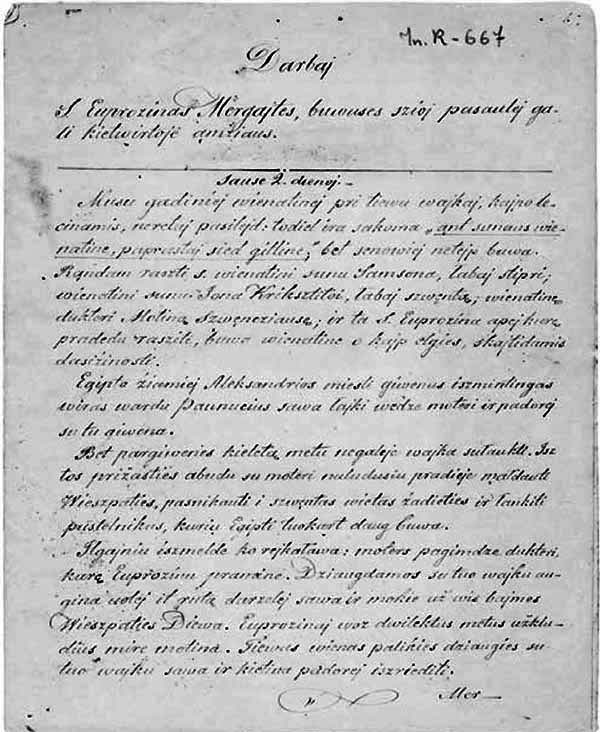 In. R-667
Darbaj
S. Euprozinas Mergajtes, buwuses szioj pasaulej ga-
li kietwirtoje amžiaus.
Sause 2. dienoj.-
Musu gadiniej wienatinej pri tiewu wajkaj, kajpo le-
cinamis, neretaj pasilejd: todiel ira sakoma „ant sunaus wie-
natine, paprastaj sied gilline," bet senowiej netejp buwa.
Randam raszti s. wienatini sunu Samsona, labaj stipri;
wienatini sunu Jona Kriksztitoi, labaj szwęnta; wienatinę
dukteri Motiną Szwęncziausę; ir ta S. Euprozina apej kurę
pradedu rasziti, buwo wienatine o kajp elgies, skajtidamis
dasižinosti.
Egipto žiamiej Aleksandrios miesti giwenus iszmintingas
wiras wardu Paunucius sawa lajki wedze moteri ir padorej
su tu giwena.
Bet pargiwenes kieletą metu negaleje wajka sutaukti. Isz
tos prižasties abudu su moteri nuludusiu pradieje matdauti
Wieszpaties, pasnikauti i szwentas wietas žadieties ir lankiti
pustelnikus, kuriu Egipti tuokart daug buwa.
Ilgajniu iszmelde ko rejkatawa: moters pagimdze dukteri,
kurę Euprozinu pramine. Dziaugdamos su tuo wajku au-
gina uolej it rutą darzelej sawa ir mokie už wis bajmes
Wieszpaties Diewa. Euprozinaj woz dwilektus metus užklu-
dius mire motina. Tiewas wienas palikies dziaugies su
tuo wajku sawa ir kietina padorej iszriediti.
Mer-